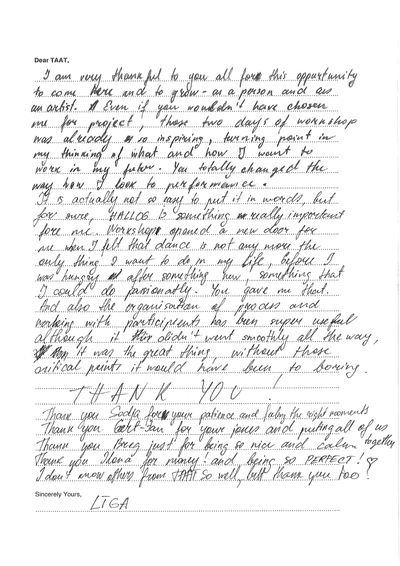 Dear TAAT,
I am very thankful to you all for this opportunity
to come here and to grow - as a person and as
an artist. Even if you wouldn't have chosen
me for project, those two days of workshop
was already so inspiring, turning point in
my thinking of what and how I want to
work in my future. You totally changed the
way how I look to performance.
It is actually not so easy to put it in words, but
for sure, HALLOS is something really important
fore me. Workshop opened a new door for
me when I felt that dance is not any more the
only thing I want to do in my life, before I
was hungry after something new, something that
I could do passionatly. You gave me that.
And also the organisation of process and
working with participients has been super useful
although it didn't went smoothly all the way,
it was the great thing, without those
critical points it would have been to boring.
THANK YOU!
Thank you for your patience and the right moments
Thank you Gert-Jan for your jokes and puting all of us together
Thank you Breg just for being so nice and calm
Thank you Ilona for money! and being SO PERFECT!
I don't know others from TAAT so well, but thank you too!
Sincerely Yours,
LIGA